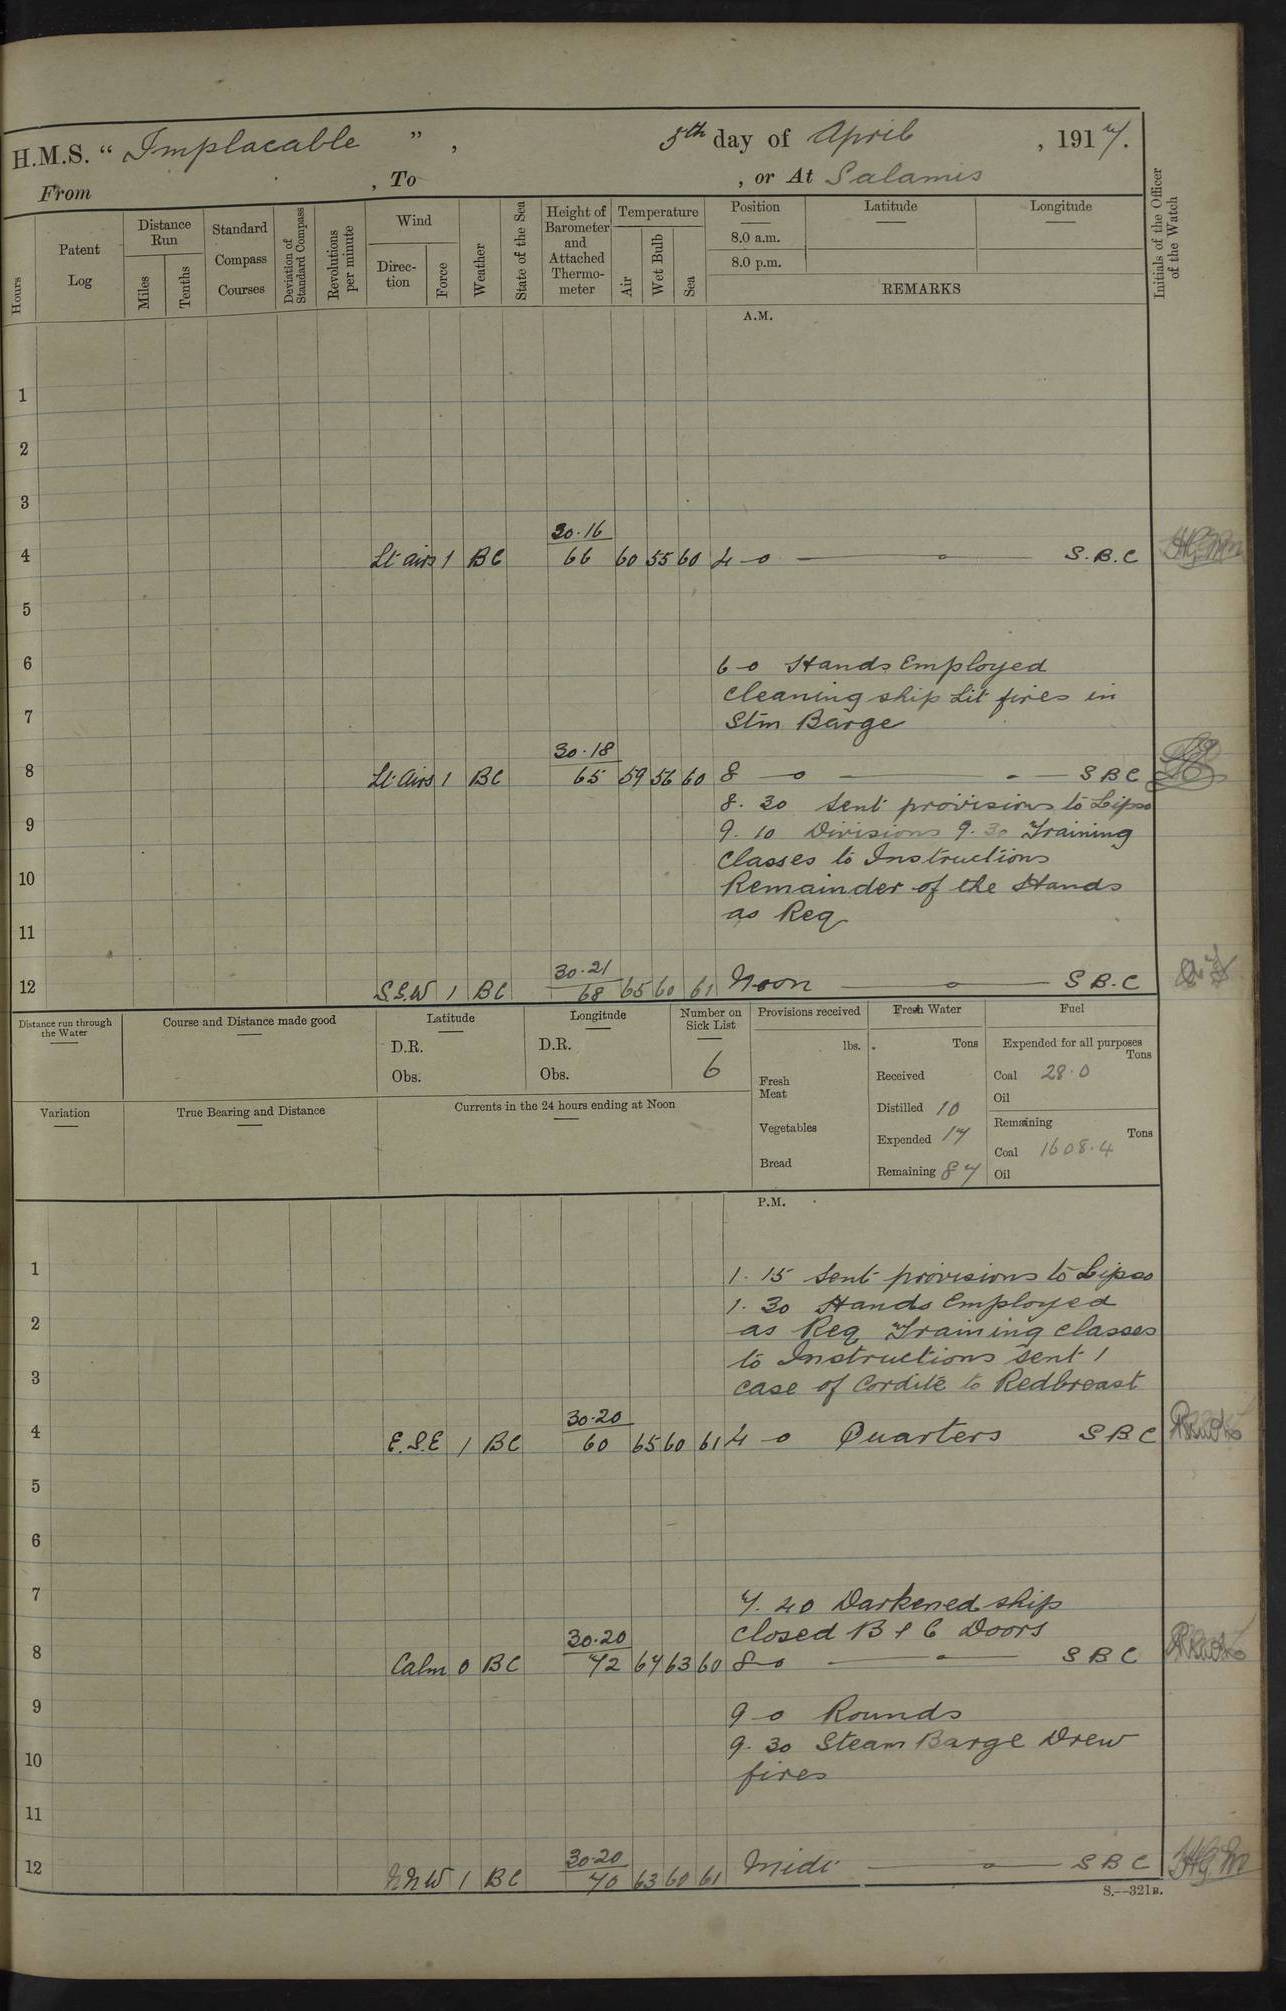 H.M.S. “ Implacable ” , 5th day of April , 1917.
From , To , or At Salamis
Hours
Patent Log
Distance Run
Miles
Tenths
Standard Compass Courses
Deviation of Standard Compass
Revolutions per minute
Wind
Direction
Force
Weather
State of the Sea
Height of Barometer and Attached Thermometer
Temperature
Air
Wet Bulb
Sea
Position
8.0 a.m.
8.0 p.m.
Latitude
Longitude
REMARKS
Initials of the Officer of the Watch
A.M.
1
2
3
30.16
4 Lt airs 1 BC 66 60 55 60 4-0 — o — S.B.C
5
6 6-0 Hands Employed
cleaning ship Lit fires in
7 Stm Barge
30.18
8 Lt airs 1 BC 65 59 56 60 8-0 — - — SBC
8.30 Sent provisions to Lipso
9 9.10 Divisions 9.30 Training
Classes to Instructions
10 Remainder of the Hands
as Req
11
30.21
12 S.S.W 1 BC 68 65 60 61 Noon — o — S B.C
Distance run through the Water
Course and Distance made good
Latitude
D.R.
Obs.
Longitude
D.R.
Obs.
Number on Sick List
6
Provisions received
lbs.
Fresh Meat
Vegetables
Bread
Fresh Water
Tons
Received
Distilled 10
Expended 17
Remaining 87
Fuel
Expended for all purposes
Tons
Coal 28.0
Oil
Remaining
Tons
Coal 1608.4
Oil
Variation
True Bearing and Distance
Currents in the 24 hours ending at Noon
P.M.
1 1.15 Sent provisions to Lipso
1.30 Hands Employed
2 as Req Training classes
to Instructions sent 1
3 case of Cordite to Redbreast
30.20
4 E.S.E 1 BC 60 65 60 61 4-0 Quarters SBC
5
6
7 7.40 Darkened ship
closed B & C Doors
30.20
8 Calm 0 BC 72 67 63 60 8-0 — - — SBC
9 9-0 Rounds
9.30 Steam Barge Drew
10 fires
11
30.20
12 NNW 1 BC 70 63 60 61 Midt — o — SBC
S.—321B.